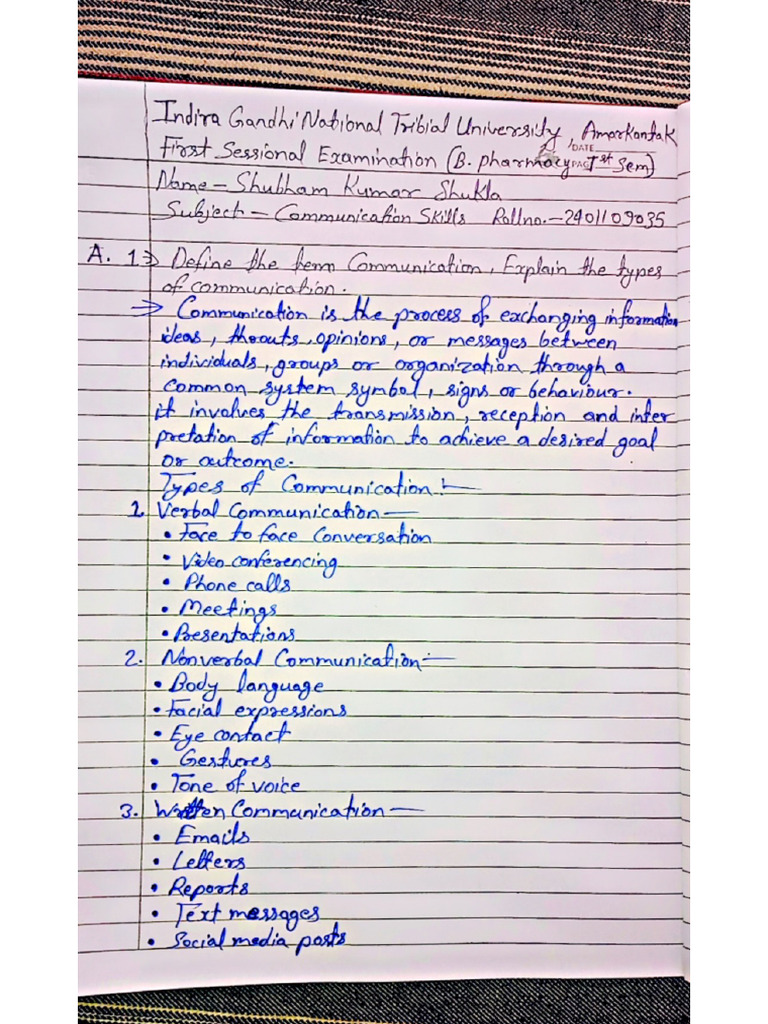 Indira Gandhi National Tribial University, Amarkantak
DATE
First Sessional Examination (B. pharmacy Ist Sem)
Name - Shubham Kumar Shukla
Subject - Communication Skills Rollno.-2401109035
A. 1⇒ Define the term Communication, Explain the types
of communication.
⇒ Communication is the process of exchanging information
ideas, thouts, opinions, or messages between
individuals, groups or organization through a
common system symbol, signs or behaviour.
it involves the transmission, reception and inter
pretation of information to achieve a desired goal
or outcome.
Types of Communication :-
1. Verbal Communication —
• Face to face Conversation
• Video conferencing
• Phone calls
• Meetings
• Presentations
2. Nonverbal Communication :-
• Body language
• Facial expressions
• Eye contact
• Gestures
• Tone of voice
3. Written Communication —
• Emails
• Letters
• Reports
• Text messages
• Social media posts